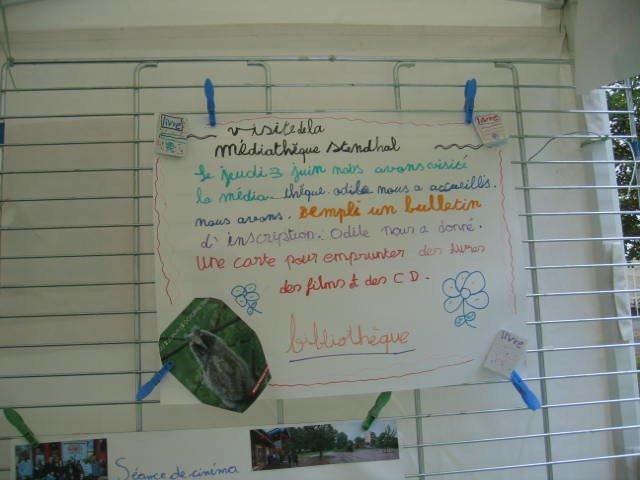 livre
livre
visite de la
médiathèque stendhal
le jeudi 3 juin nous avons visité
la média-thèque. odile nous a accueillis.
nous avons. rempli un bulletin
d'inscription. Odile nous a donné.
une carte pour emprunter des livres
des films et des CD.
bibliothèque
livre
Séance de cinéma